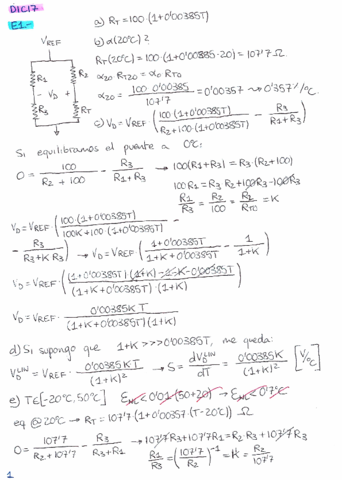 DIC17
E1-
a) RT = 100·(1+0'00385T)
b) α(20ºC)?
VREF
RT(20ºC) = 100·(1+0'00385·20) = 107'7 Ω
α20 RT20 = α0 RT0
R1
R2
- VD +
α20 = 100·0'00385 / 107'7 = 0'00357 → 0'357%/ºC
R3
RT
c) VD = VREF (100(1+0'00385T) / R2+100·(1+0'00385T) - R3 / R1+R3)
Si equilibramos el puente a 0ºC:
0 = 100 / R2+100 - R3 / R1+R3 → 100(R1+R3) = R3·(R2+100)
100R1 = R3 R2 + 100R3 - 100R3
R1/R3 = R2/100 = R2/RT0 = K
VD = VREF·(100(1+0'00385T) / 100K+100·(1+0'00385T) -
- R3 / R3+K R3) → VD = VREF (1+0'00385T / 1+K+0'00385T - 1 / 1+K)
VD = VREF·((1+0'00385T)(1+K) -1-K-0'00385T / (1+K+0'00385T)·(1+K))
VD = VREF· 0'00385 K T / (1+K+0'00385T)(1+K)
d) Si supongo que 1+K >>> 0'00385T, me queda:
VD^LIN = VREF· 0'00385KT / (1+K)² → S = dVD^LIN / dT = 0'00385K / (1+K)² [V/ºC]
e) T∈[-20ºC, 50ºC] ENL < 0'01 (50+20) → ENL < 0'7ºC
eq @20ºC → RT = 107'7(1+0'00357(T-20ºC)) Ω
0 = 107'7 / R2+107'7 - R3 / R3+R1 → 107'7R3 + 107'7R1 = R2R3 + 107'7R3
R1/R3 = (107'7/R2)^-1 = K = R2/107'7
1